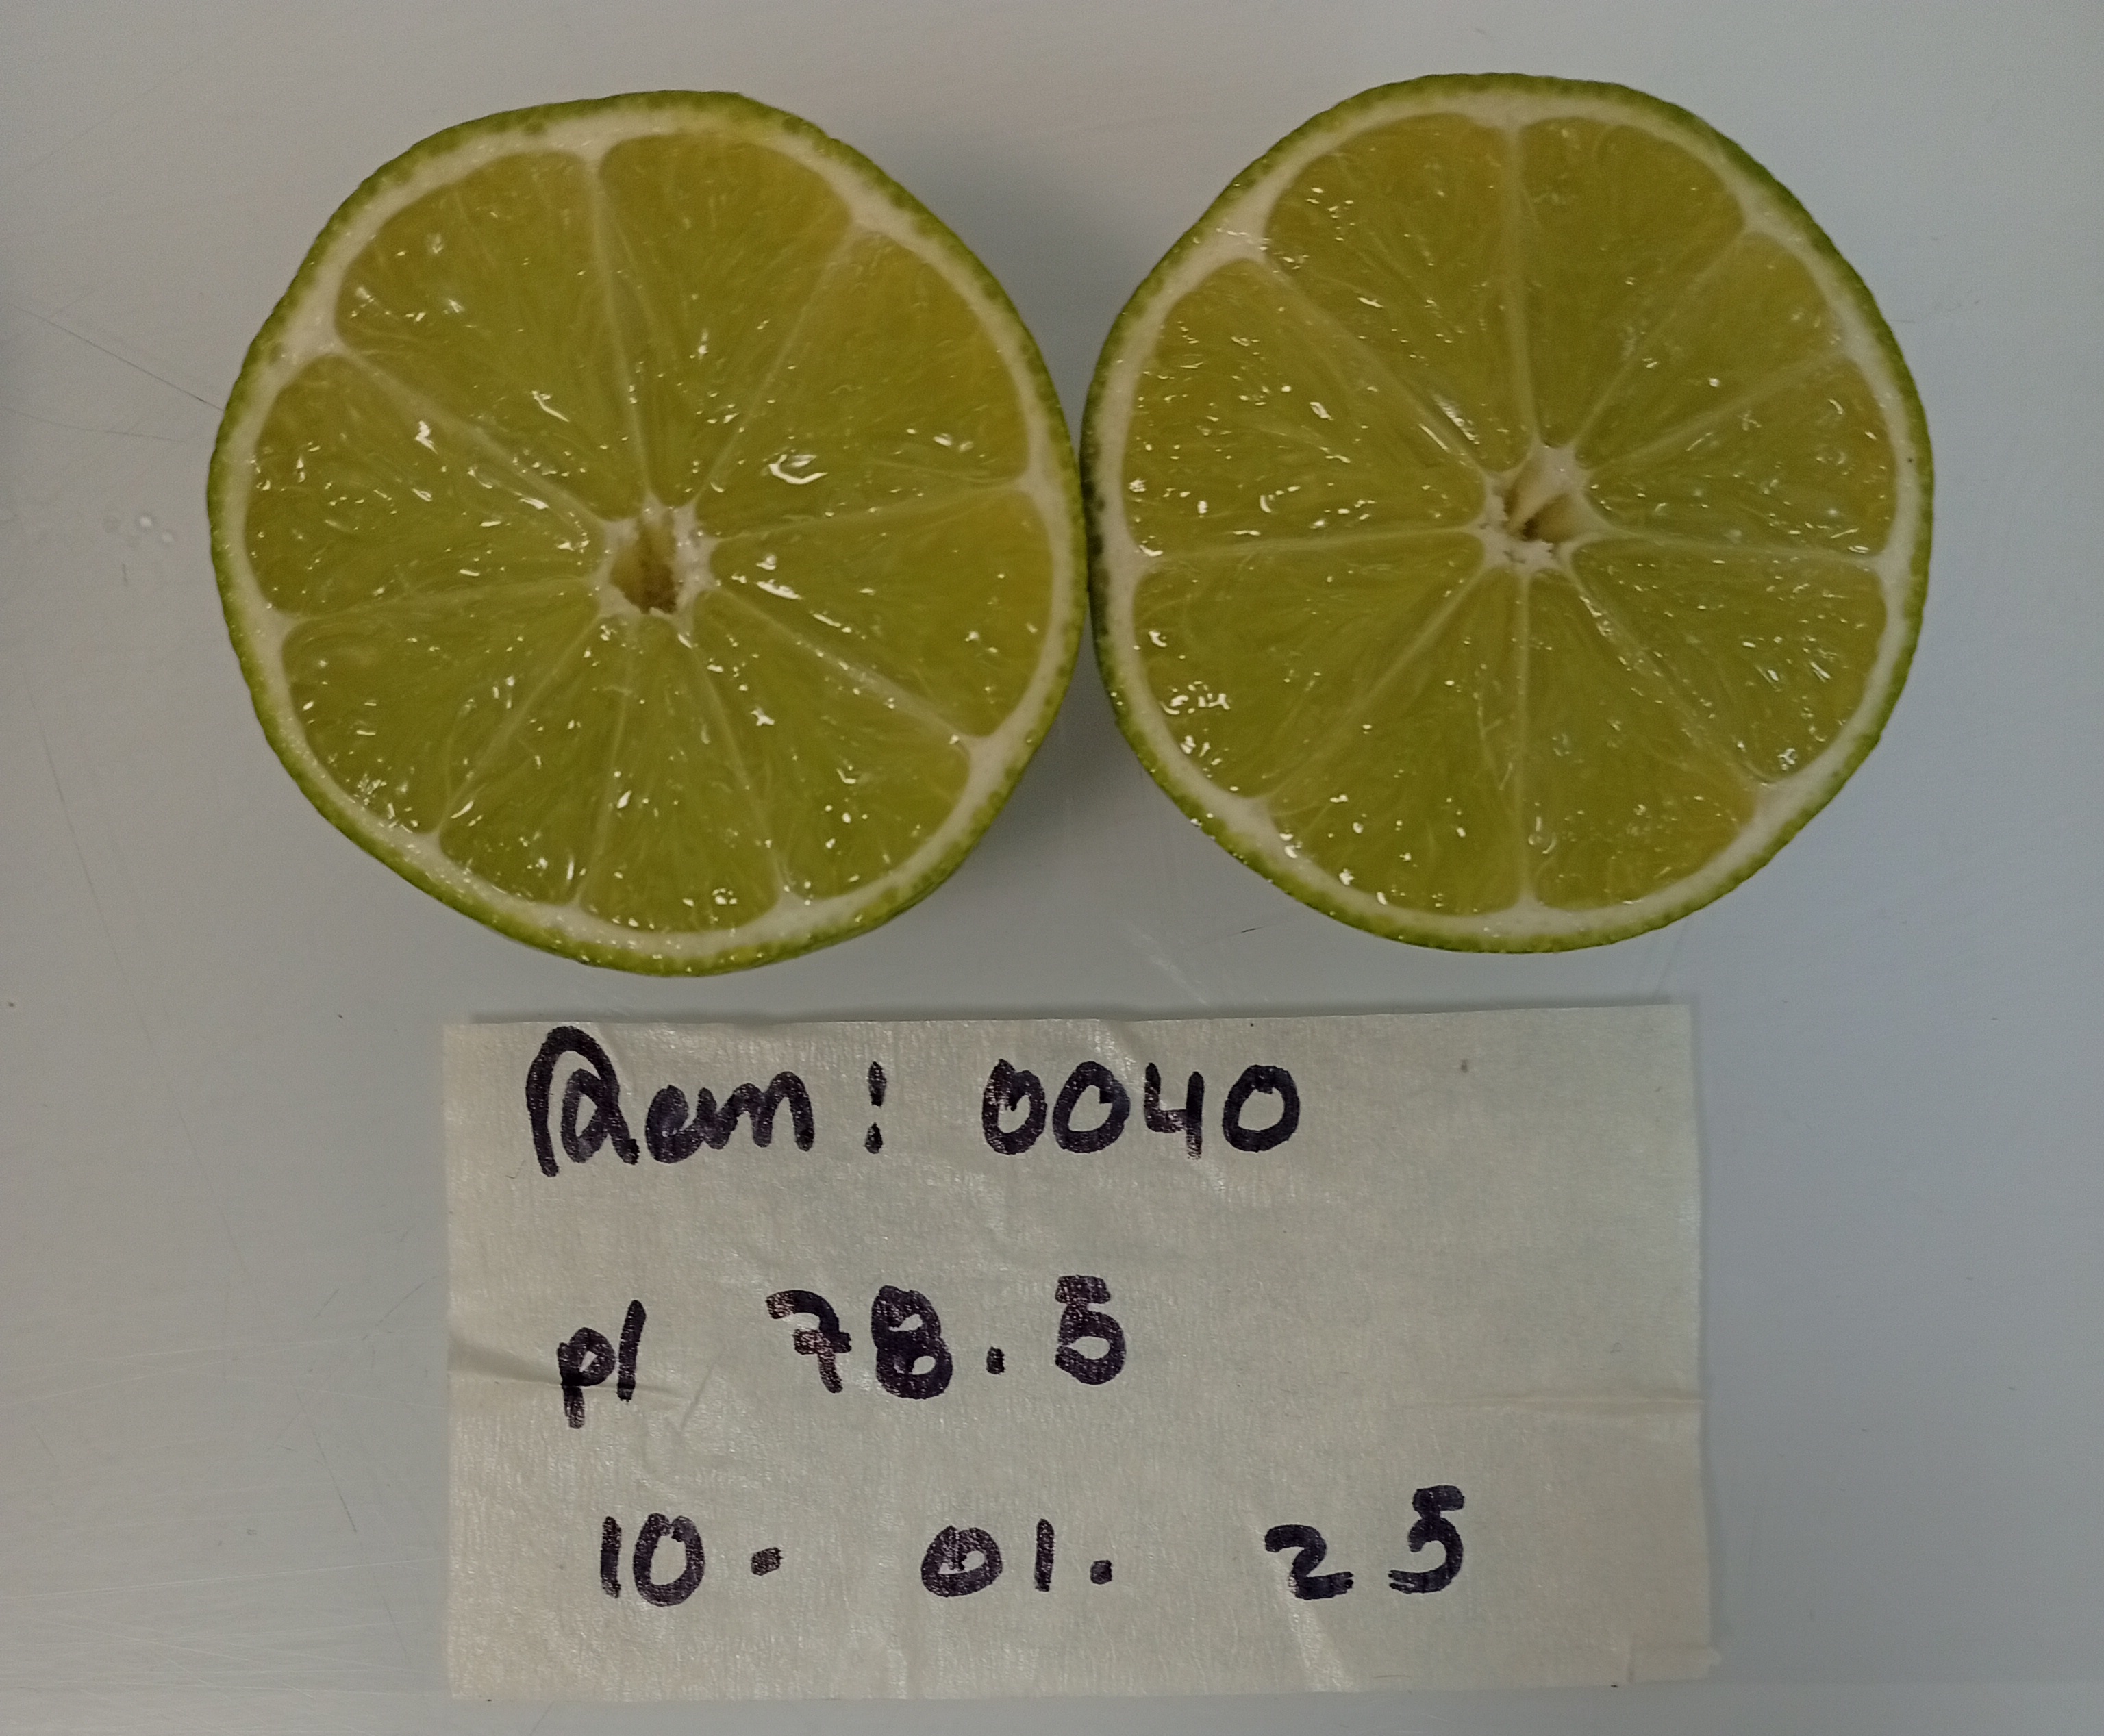 Rem: 0040
pl 78.5
10. 01. 25